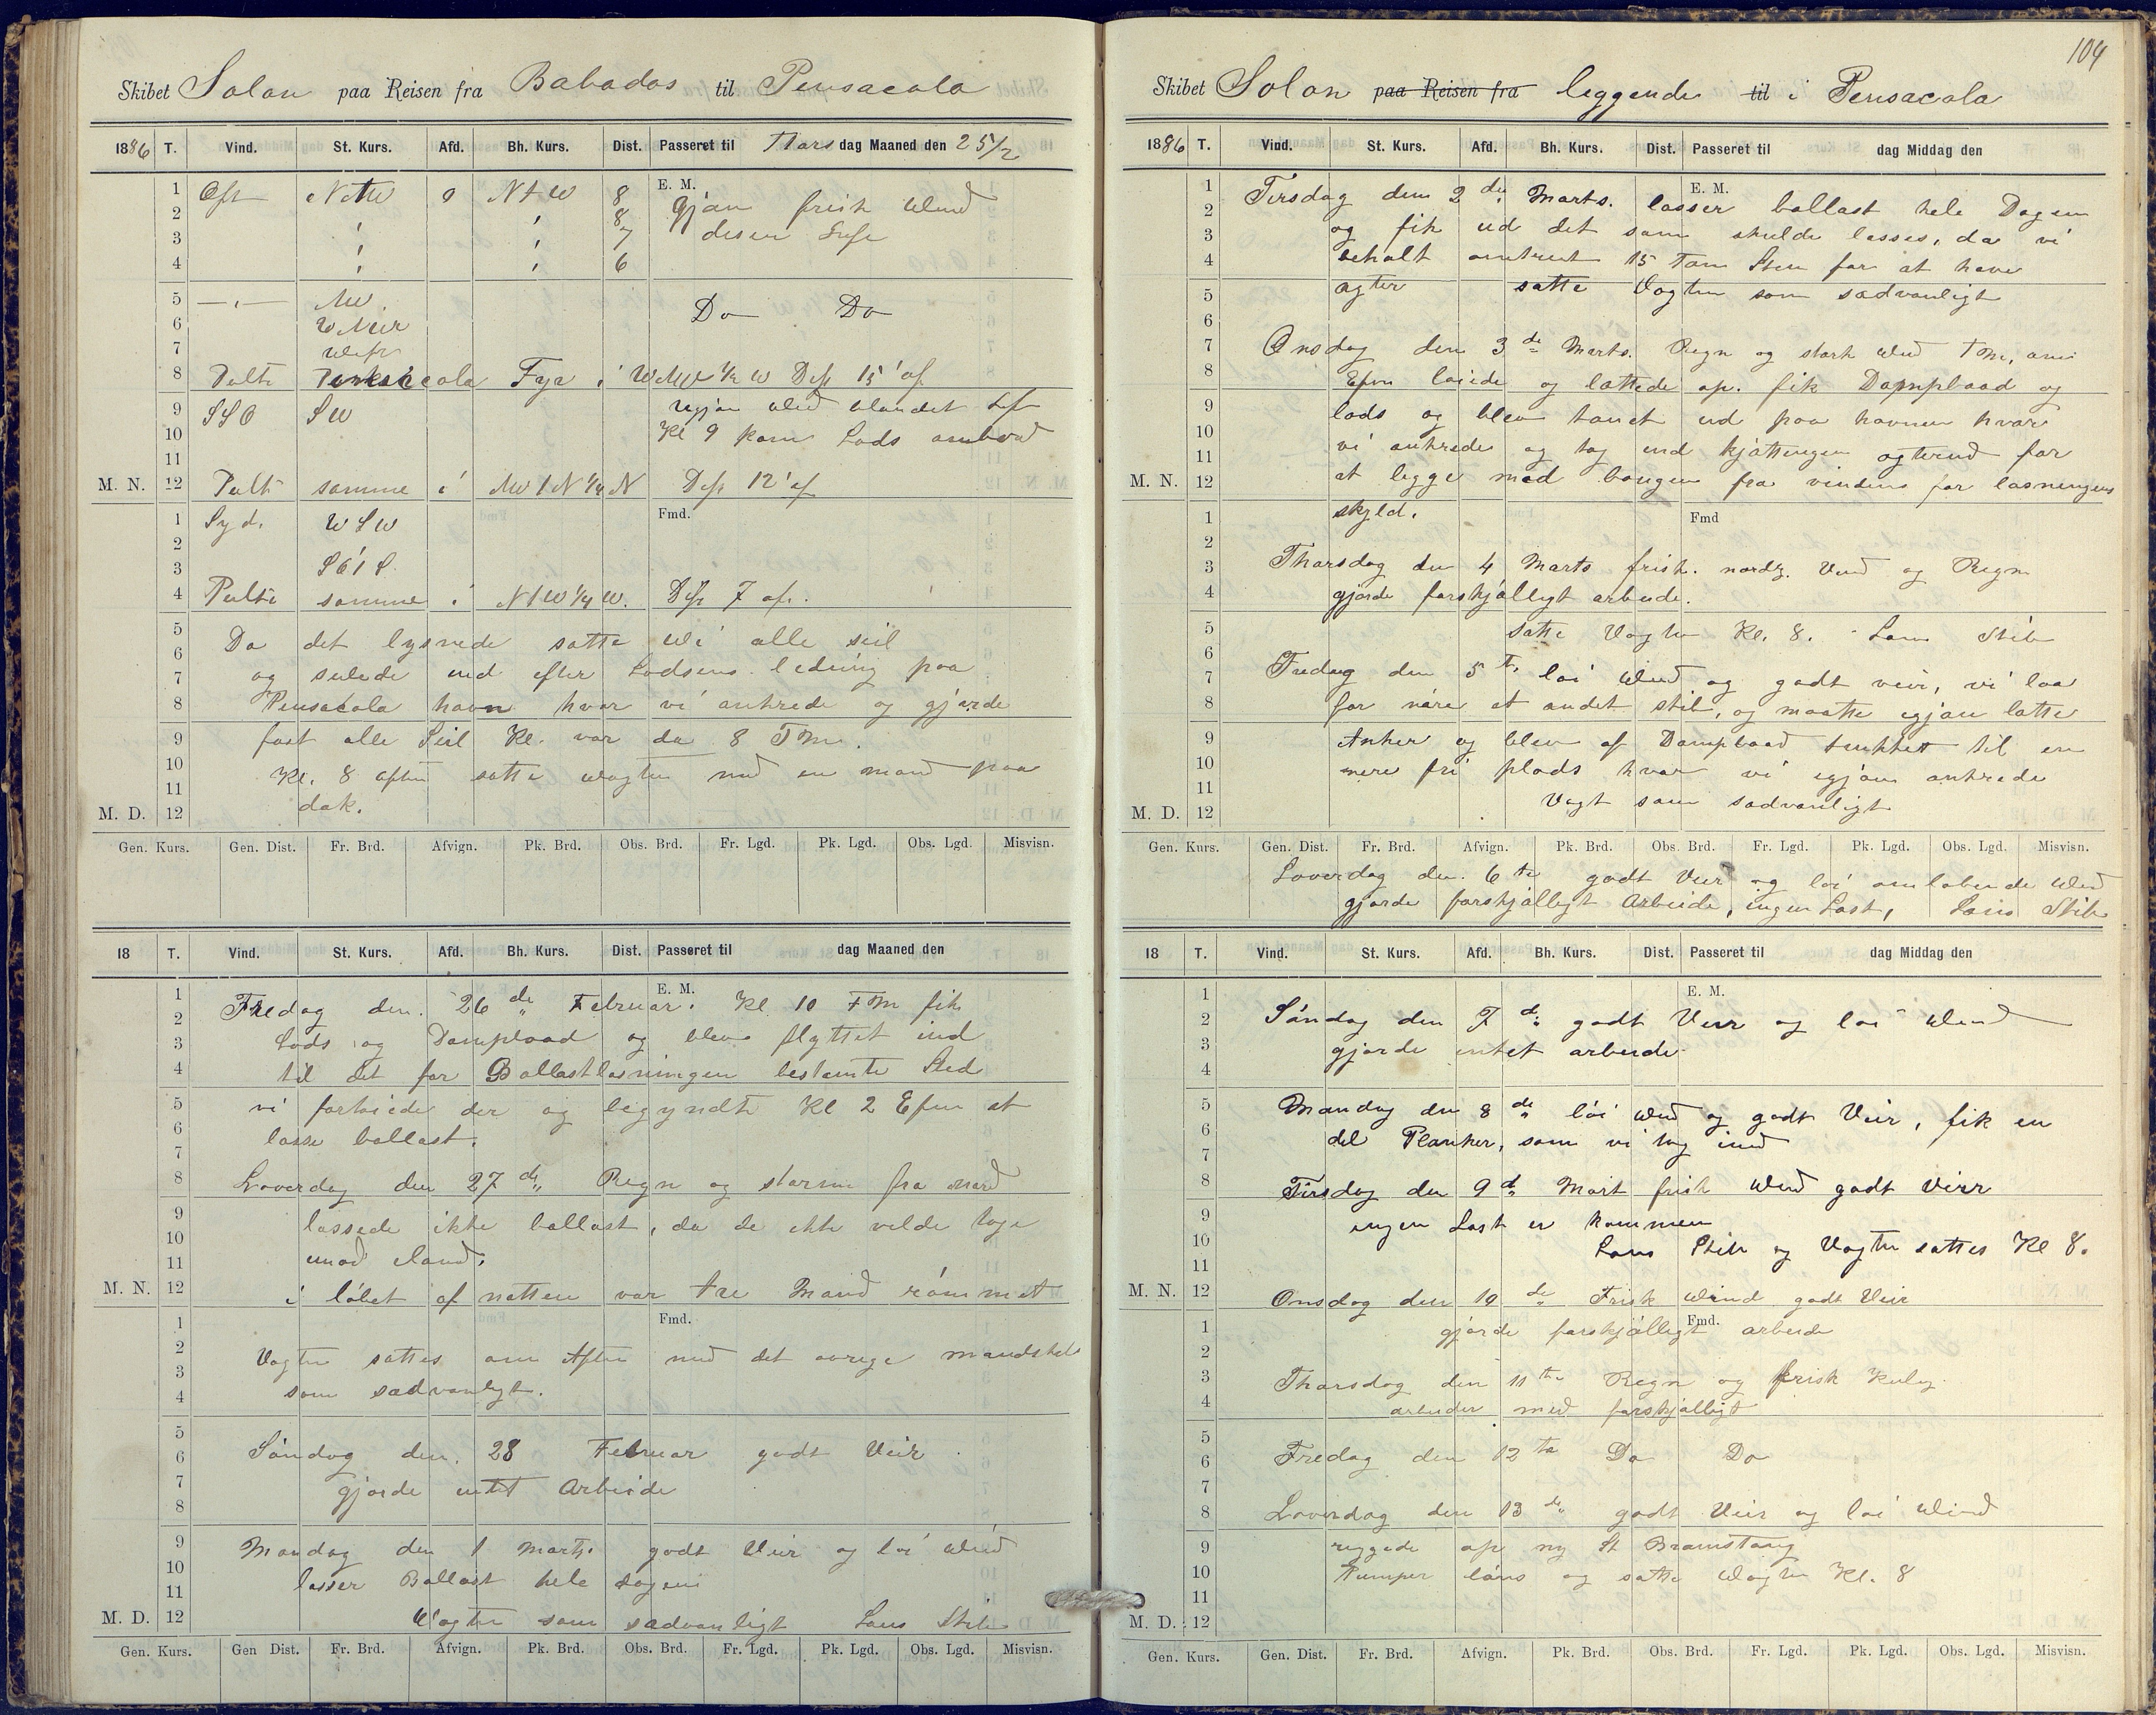 Skibet Solon paa Reisen fra Babados til Pensacola
1886 T. Vind. St. Kurs. Afd. Bh. Kurs. Dist. Passeret til Tors dag Maaned den 25/2
E. M.
1 Ost 0 NtW 8 frisk Wind
2 8
3 7
4 6
5 NW. Do Do
6
7
8 Peilte Pensacola Fyr i WNW 1/2 W Dist 15' af
9 SSO SW
10 Kl 9 kom Lods ombord
11
M. N. 12 Peilte samme i NW t N 1/4 N Dist 12' af
Fmd.
1 Syd. WSW
2
3 SOtS.
4 Peilte samme i NtW 1/4 W. Dist 7 af.
5 Da det lysnede satte Wi alle seil
6
7 og seilede ind efter Lodsens ledning paa
8 Pensacola havn hvor vi ankrede og gjorde
9 fast alle Seil Kl. var da 8 FM.
10 Kl. 8 aften satte wagten med en mand paa
11
M. D. 12 dæk.
Gen. Kurs. Gen. Dist. Fr. Brd. Afvign. Pk. Brd. Obs. Brd. Fr. Lgd. Pk. Lgd. Obs. Lgd. Misvisn.
18 T. Vind. St. Kurs. Afd. Bh. Kurs. Dist. Passeret til dag Maaned den
E. M.
1 Fredag den. 26 de Februar. Kl 10 FM fik
2
3 Lods og Dampbaad og blev flyttet ind
4 til det for Ballastlosningen bestemte Sted
5 vi fortøiede der og begyndte Kl 2 Efm at
6 losse ballast.
7
8 Loverdag den 27 de Regn og storm fra nord
9 lossede ikke ballast, da de ikke vilde tage
10
11 imod iland.
M. N. 12 i løbet af natten var tre Mand rømmet
Fmd.
1
2 Vagten sattes om Aften med det øvrige mandskab
3
4 som sædvanligt.
5
6 Søndag den. 28 Februar godt Veir
7 gjorde intet Arbeide
8
9 Mandag den 1 Marts. godt Veir og løi Wind
10
11 losser Ballast hele dagen
M. D. 12 Wagten som sædvanligt Lens Skib
Gen. Kurs. Gen Dist. Fr. Brd. Afvign. Pk. Brd. Obs. Brd. Fr. Lgd. Pk. Lgd. Obs. Lgd. Misvisn.
104
Skibet Solon paa Reisen fra leggende til i Pensacola
1886 T. Vind. St. Kurs. Afd. Bh. Kurs. Dist. Passeret til dag Middag den
E. M.
1 Tirsdag den 2 de Marts. losser ballast hele Dagen
2 og fik ud det som skulde losses, da vi
3
4 behalt omtrent 15 Tom Sten for at have
5 agter satte Vagten som sædvanligt
6
7 Onsdag den 3 de Marts. Regn og stærk Wind FM, om
8 Efm løiede og lættede op. fik Dampbaad og
9 lods og blev tauet ud paa havnen hvor
10
11 vi ankrede og tog ind kjættingen agterind for
M. N. 12 at legge med bougen fra vinden for lasningens
Fmd
1 skyld.
2
3 Thorsdag den 4 Marts frisk. nordl. Vind og Regn
4 gjorde forskjælligt arbeide.
5 satte Vagten Kl. 8. Lens Skib
6
7 Fredag den 5 te løi Wind og godt veir, vi laa
8 for nære et andet skib, og maatte igjen lætte
9 Anker og blev af Dampbaad trukket til en
10 mere fri plads hvor vi igjen ankrede
11
M. D. 12 Vagt som sædvanligt
Gen. Kurs. Gen. Dist. Fr. Brd. Afvign. Pk. Brd. Obs. Brd. Fr. Lgd. Pk. Lgd. Obs. Lgd. Misvisn.
Loverdag den. 6 te godt Veir og løi omløbende Wind
gjorde forskjælligt Arbeide, ingen Last, Lens Skib
18 T. Vind. St. Kurs. Afd. Bh. Kurs. Dist. Passeret til dag Middag den
E. M.
1
2 Søndag den 7 de godt Veir og løi Wind
3 gjorde intet arbeide
4
5 Mandag den 8 de løi Wind og godt Veir, fik en
6 del Planker, som vi tog ind
7
8 Tirsdag den 9 de Mart frisk Wind godt Veir
9 ingen Last er kommen
10 Lens Skib og Vagten sattes Kl 8.
11
M. N. 12 Onsdag den 10 de Frisk Wind godt Veir
Fmd.
1 gjorde forskjælligt arbeide
2
3 Thorsdag den 11 te Regn og frisk Kuling
4 arbeider med forskjælligt
5
6 Fredag den 12 te Do Do
7
8 Loverdag den 13 de godt Veir og løi Wind
9 riggede op ny St Bramstang
10 Pumper læns og satte Wagten Kl. 8
11
M. D. 12
Gen. Kurs. Gen. Dist. Fr. Brd. Afvign. Pk. Brd. Obs. Brd. Fr. Lgd. Pk. Lgd. Obs. Lgd. Misvisn.